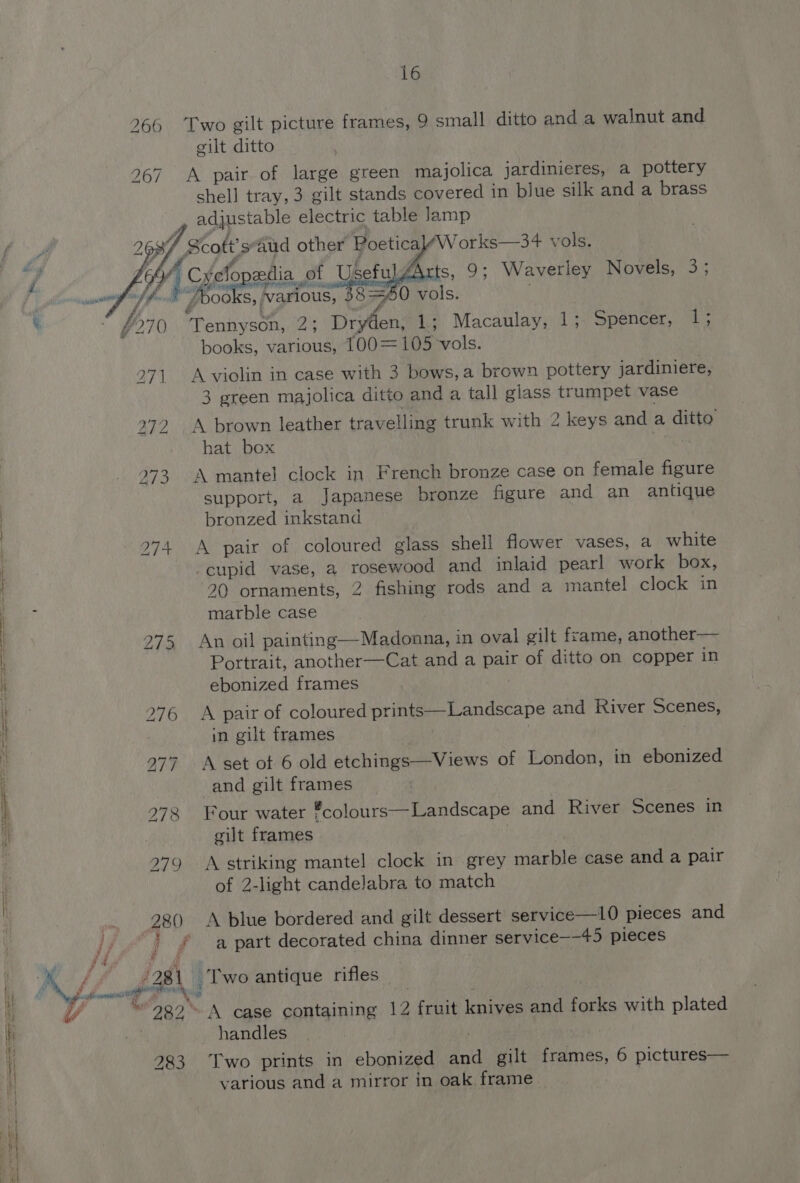 16
266 Two gilt picture frames, 9 small ditto and a walnut and
gilt ditto
267 A pair of large green majolica jardinieres, a pottery
shell tray, 3 gilt stands covered in blue silk and a brass
adjustable electric table lamp
268 Scott's and other Poetical Works—34 vols.
269 Cyclopædia of Useful Arts, 9; Waverley Novels, 3;
books, various, 38=50 vols.
270 Tennyson, 2; Dryden, 1; Macaulay, 1; Spencer, 1;
books, various, 100=105 vols.
271 A violin in case with 3 bows, a brown pottery jardiniere,
3 green majolica ditto and a tall glass trumpet vase
272 A brown leather travelling trunk with 2 keys and a ditto
hat box
273 A mantel clock in French bronze case on female figure
support, a Japanese bronze figure and an antique
bronzed inkstand
274 A pair of coloured glass shell flower vases, a white
cupid vase, a rosewood and inlaid pearl work box,
20 ornaments, 2 fishing rods and a mantel clock in
marble case
275 An oil painting—Madonna, in oval gilt frame, another—
Portrait, another—Cat and a pair of ditto on copper in
ebonized frames
276 A pair of coloured prints—Landscape and River Scenes,
in gilt frames
277 A set of 6 old etchings—Views of London, in ebonized
and gilt frames
278 Four water colours—Landscape and River Scenes in
gilt frames
279 A striking mantel clock in grey marble case and a pair
of 2-light candelabra to match
280 A blue bordered and gilt dessert service—10 pieces and
a part decorated china dinner service—45 pieces
281 Two antique rifles
282 A case containing 12 fruit knives and forks with plated
handles
283 Two prints in ebonized and gilt frames, 6 pictures—
various and a mirror in oak frame